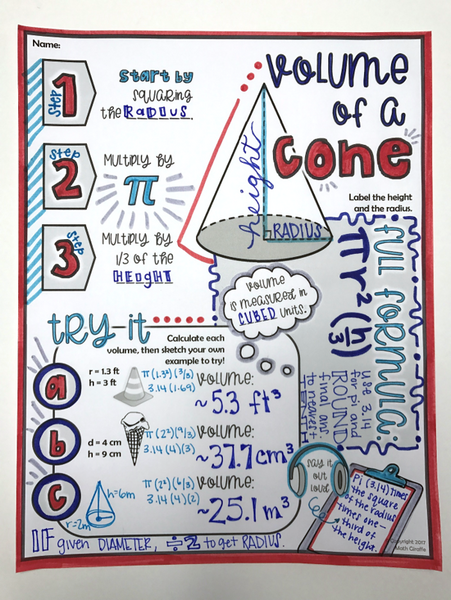 Name:
VOLUME
OF A
CONE
Step 1
Start by
squaring
the RADIUS.
Step 2
Multiply by
π
Step 3
Multiply by
1/3 of the
HEIGHT
height
RADIUS
Label the height
and the radius.
FULL FORMULA:
πr²(h/3)
use 3.14
for pi and
ROUND
final ans
to nearest
TENTH
volume
is measured in
CUBED units.
try it
Calculate each
volume, then sketch your own
example to try!
a
r = 1.3 ft
h = 3 ft
π(1.3²)(3/3)
3.14(1.69)
Volume:
~5.3 ft³
b
d = 4 cm
h = 9 cm
π(2²)(9/3)
3.14(4)(3)
Volume:
~37.7cm³
c
h=6m
r=2m
π(2²)(6/3)
3.14(4)(2)
Volume:
~25.1m³
say it
out
loud
Pi (3.14) times
the square
of the radius
times one-
third of
the height.
Copyright 2017
Math Giraffe
IF given DIAMETER, ÷2 to get RADIUS.